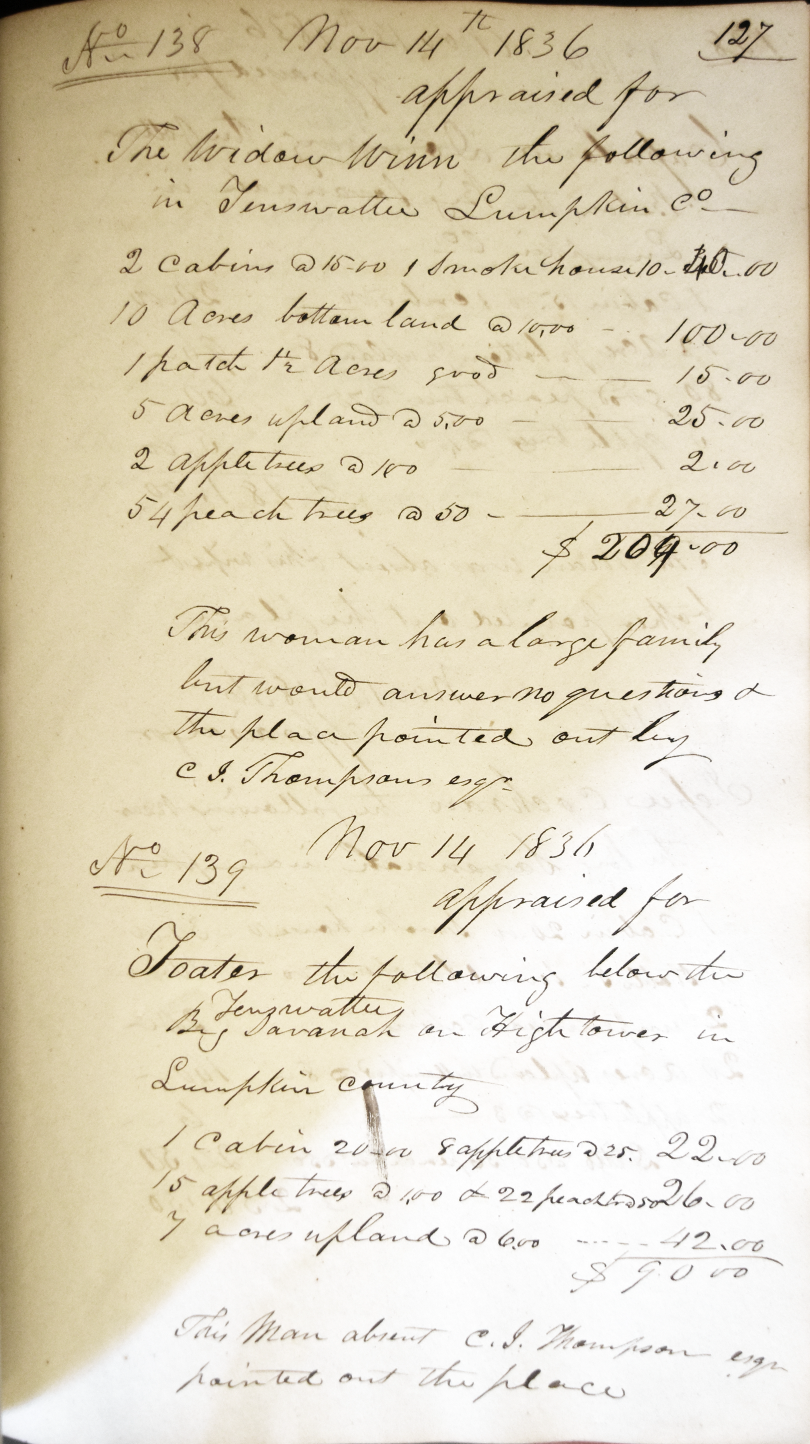 No 138 Nov 14th 1836 127
appraised for
The Widow Winn the following
in Tenswattee Lumpkin Co
2 Cabins @ 15-00 1 Smoke house 10- $40.-00
10 Acres bottom land @ 10,00 - 100-00
1 patch 1½ Acres good — — 15-00
5 Acres upland @ 5,00 — — 25-00
2 apple trees @ 100 — — 2-00
54 peach trees @ 50 - — 27-00
$ 209-00
This woman has a large family
but would answer no questions &
the place pointed out by
C. J. Thompsons esqr
Nov 14 1836
No 139
appraised for
Toater the following below the
Tenswattee
Big Savanah on Hightower in
Lumpkin county
1 Cabin 20-00 8 apple trees @ 25. 22-00
15 apple trees @ 1,00 & 22 peach do @ 50 26-00
7 acres upland @ 6.00 ----- 42.00
$ 90 00
This Man absent C. J. Thompson esqr
pointed out the place